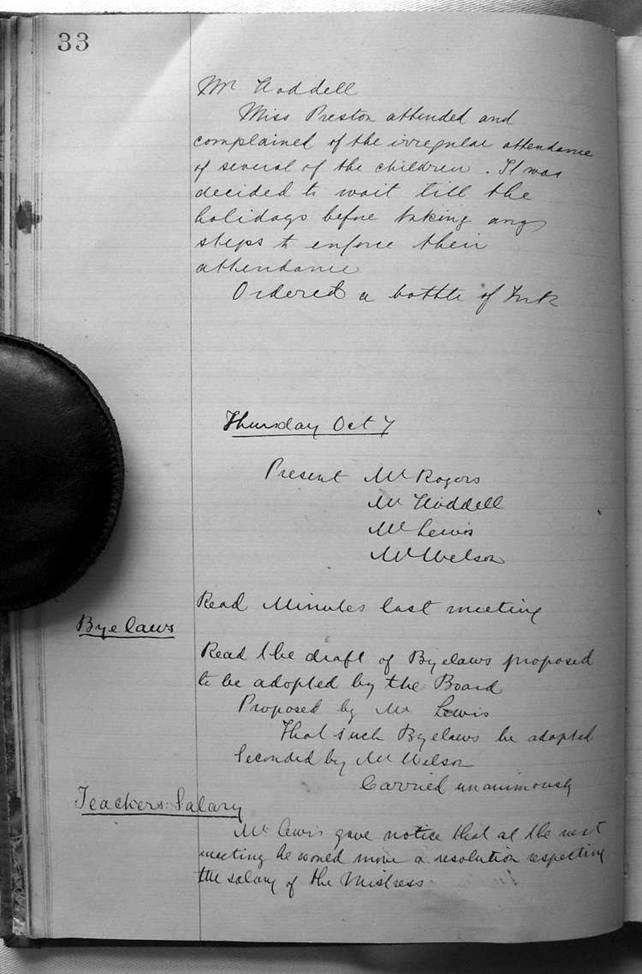 33
Mr Hoddell
Miss Preston attended and
complained of the irregular attendance
of several of the children. It was
decided to wait till the
holidays before taking any
steps to enforce their
attendance
Ordered a bottle of Ink
Thursday Oct 7
Present Mr Rogers
Mr Hoddell
Mr Lewis
Mr Welson
Read Minutes last meeting
Byelaws
Read the draft of Byelaws proposed
to be adopted by the Board
Proposed by Mr Lewis
That such Byelaws be adopted
Seconded by Mr Welson
Carried unanimously
Teachers Salary
Mr Lewis gave notice that at the next
meeting he would move a resolution respecting
the salary of the Mistress